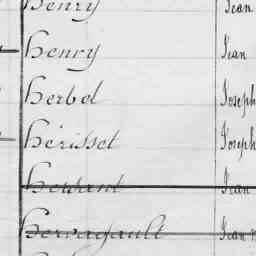 Henry Jean
Henry Jean
Herbel Joseph
Hérisset Joseph
Jean
Hervagault Jean